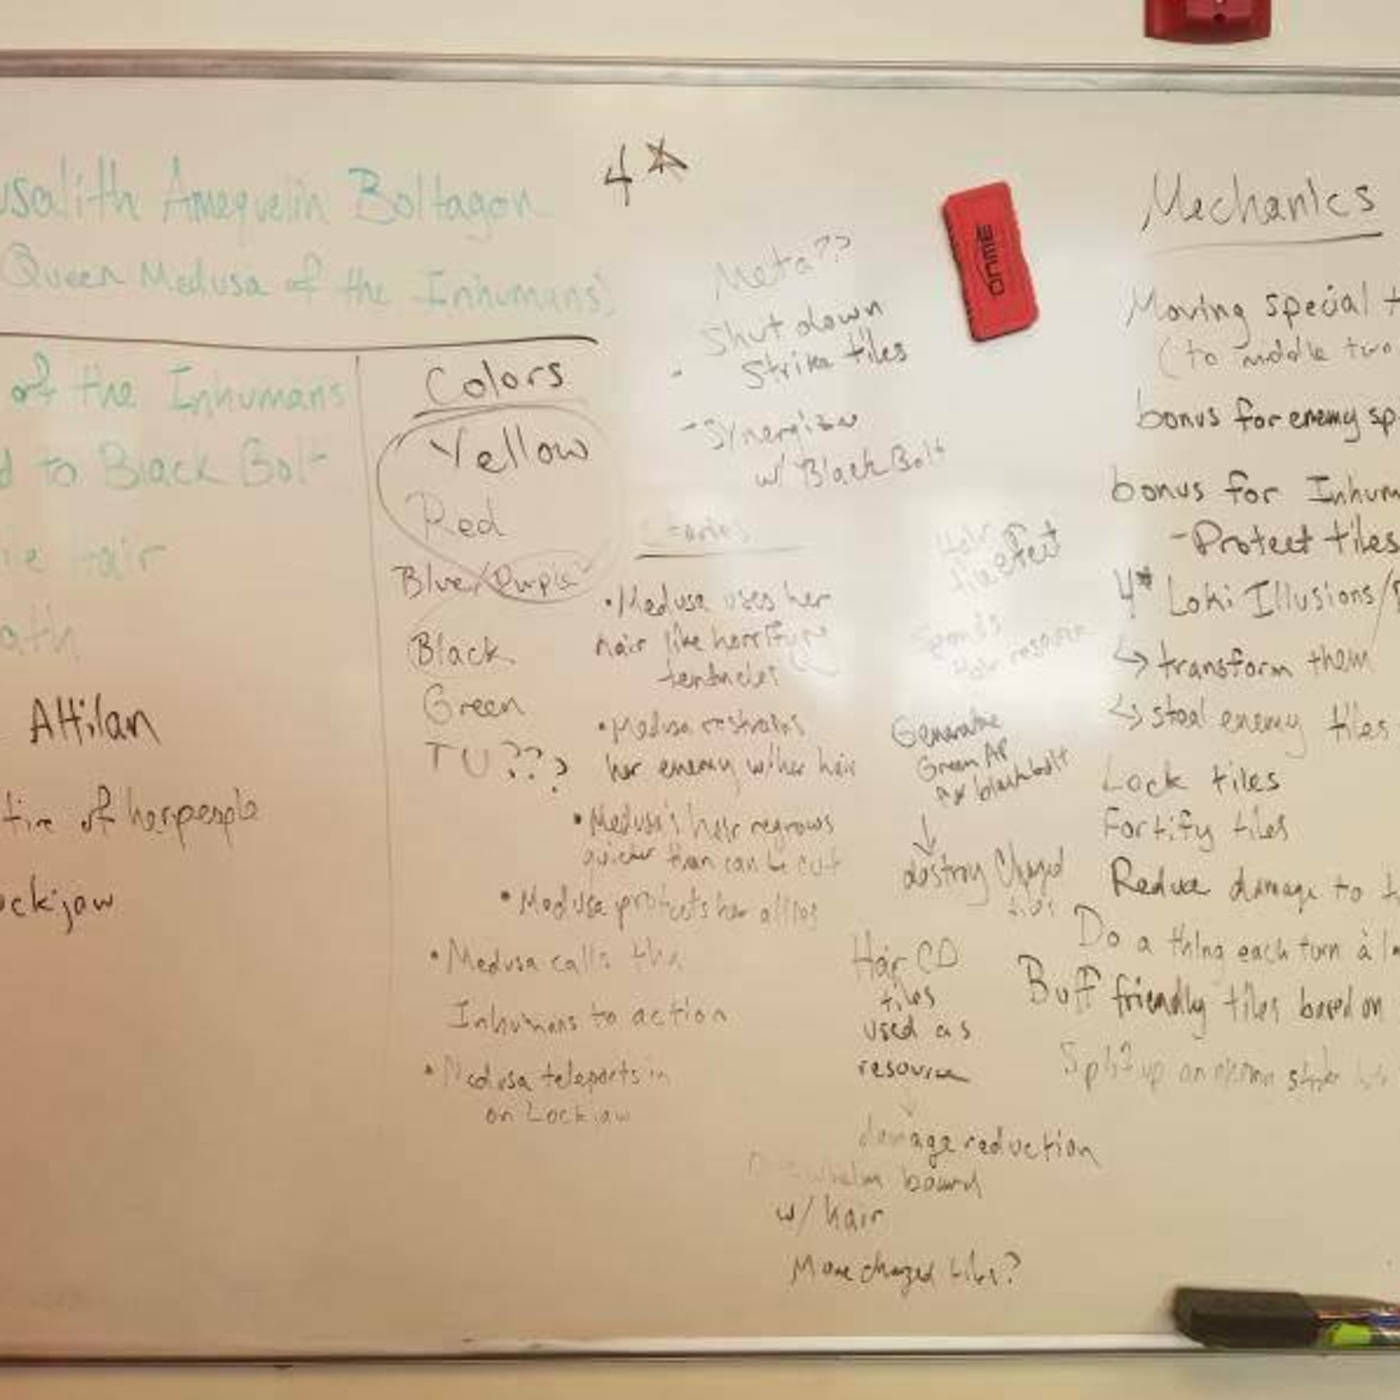 usalith Amequelin Boltagon
Queen Medusa of the Inhumans)
4*
of the Inhumans
d to Black Bolt
ie Hair
ath
Attilan
tire of her people
ockjaw
Colors
Yellow
Red
Blue/Purple
Black
Green
TU???
Meta??
- Shut down
Strike tiles
- Synergize
w/ Black Bolt
Stories
• Medusa uses her
hair like horrifying
tentacles
• Medusa restrains
her enemy w/her hair
• Medusa's hair regrows
quicker than can be cut
• Medusa protects her allies
• Medusa calls the
Inhumans to action
• Medusa teleports in
on Lockjaw
QUME
Hair
Spends
Hair resource
Generate
Green AP
for blackbolt
↓
destroy Charged
tiles
Hair CD
tiles
used as
resource
↓
damage reduction
Overwhelm board
w/ hair
More charged tiles?
Mechanics
Moving special t
(to middle turn
bonus for enemy sp
bonus for Inhum
- Protect tiles
4* Loki Illusions/
↳ transform them
↳ steal enemy tiles
Lock tiles
Fortify tiles
Reduce damage to t
Do a thing each turn à la
Buff friendly tiles based on
Split up an enemy strike